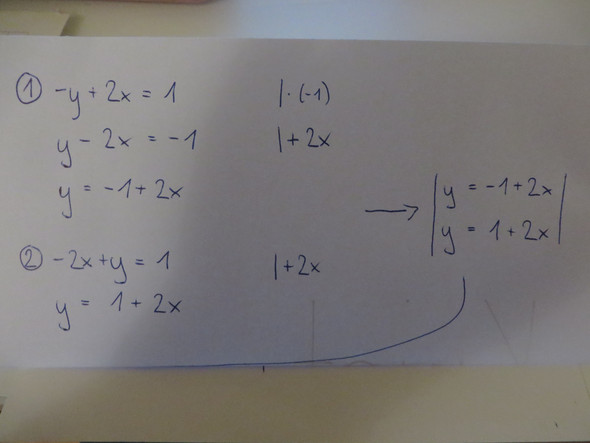 ① -y + 2x = 1 | · (-1)
y - 2x = -1 | + 2x
y = -1 + 2x
② -2x + y = 1 | + 2x
y = 1 + 2x
→ | y = -1 + 2x |
| y = 1 + 2x |